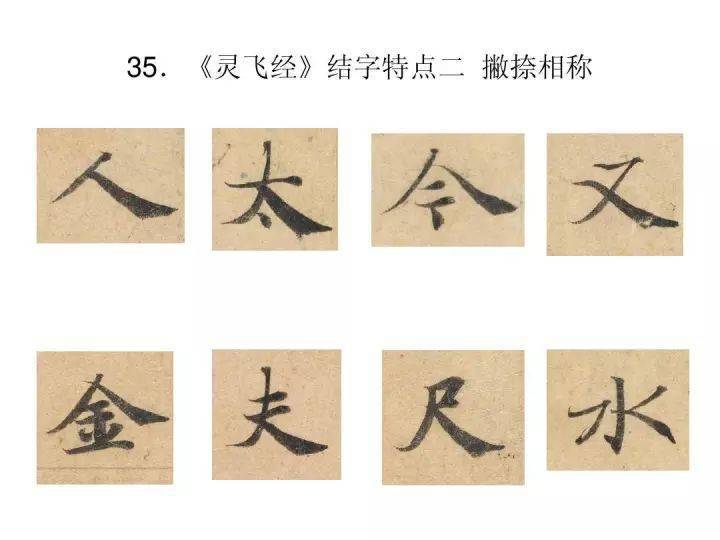 35．《灵飞经》结字特点二 撇捺相称
人 太 今 又
金 夫 尺 水